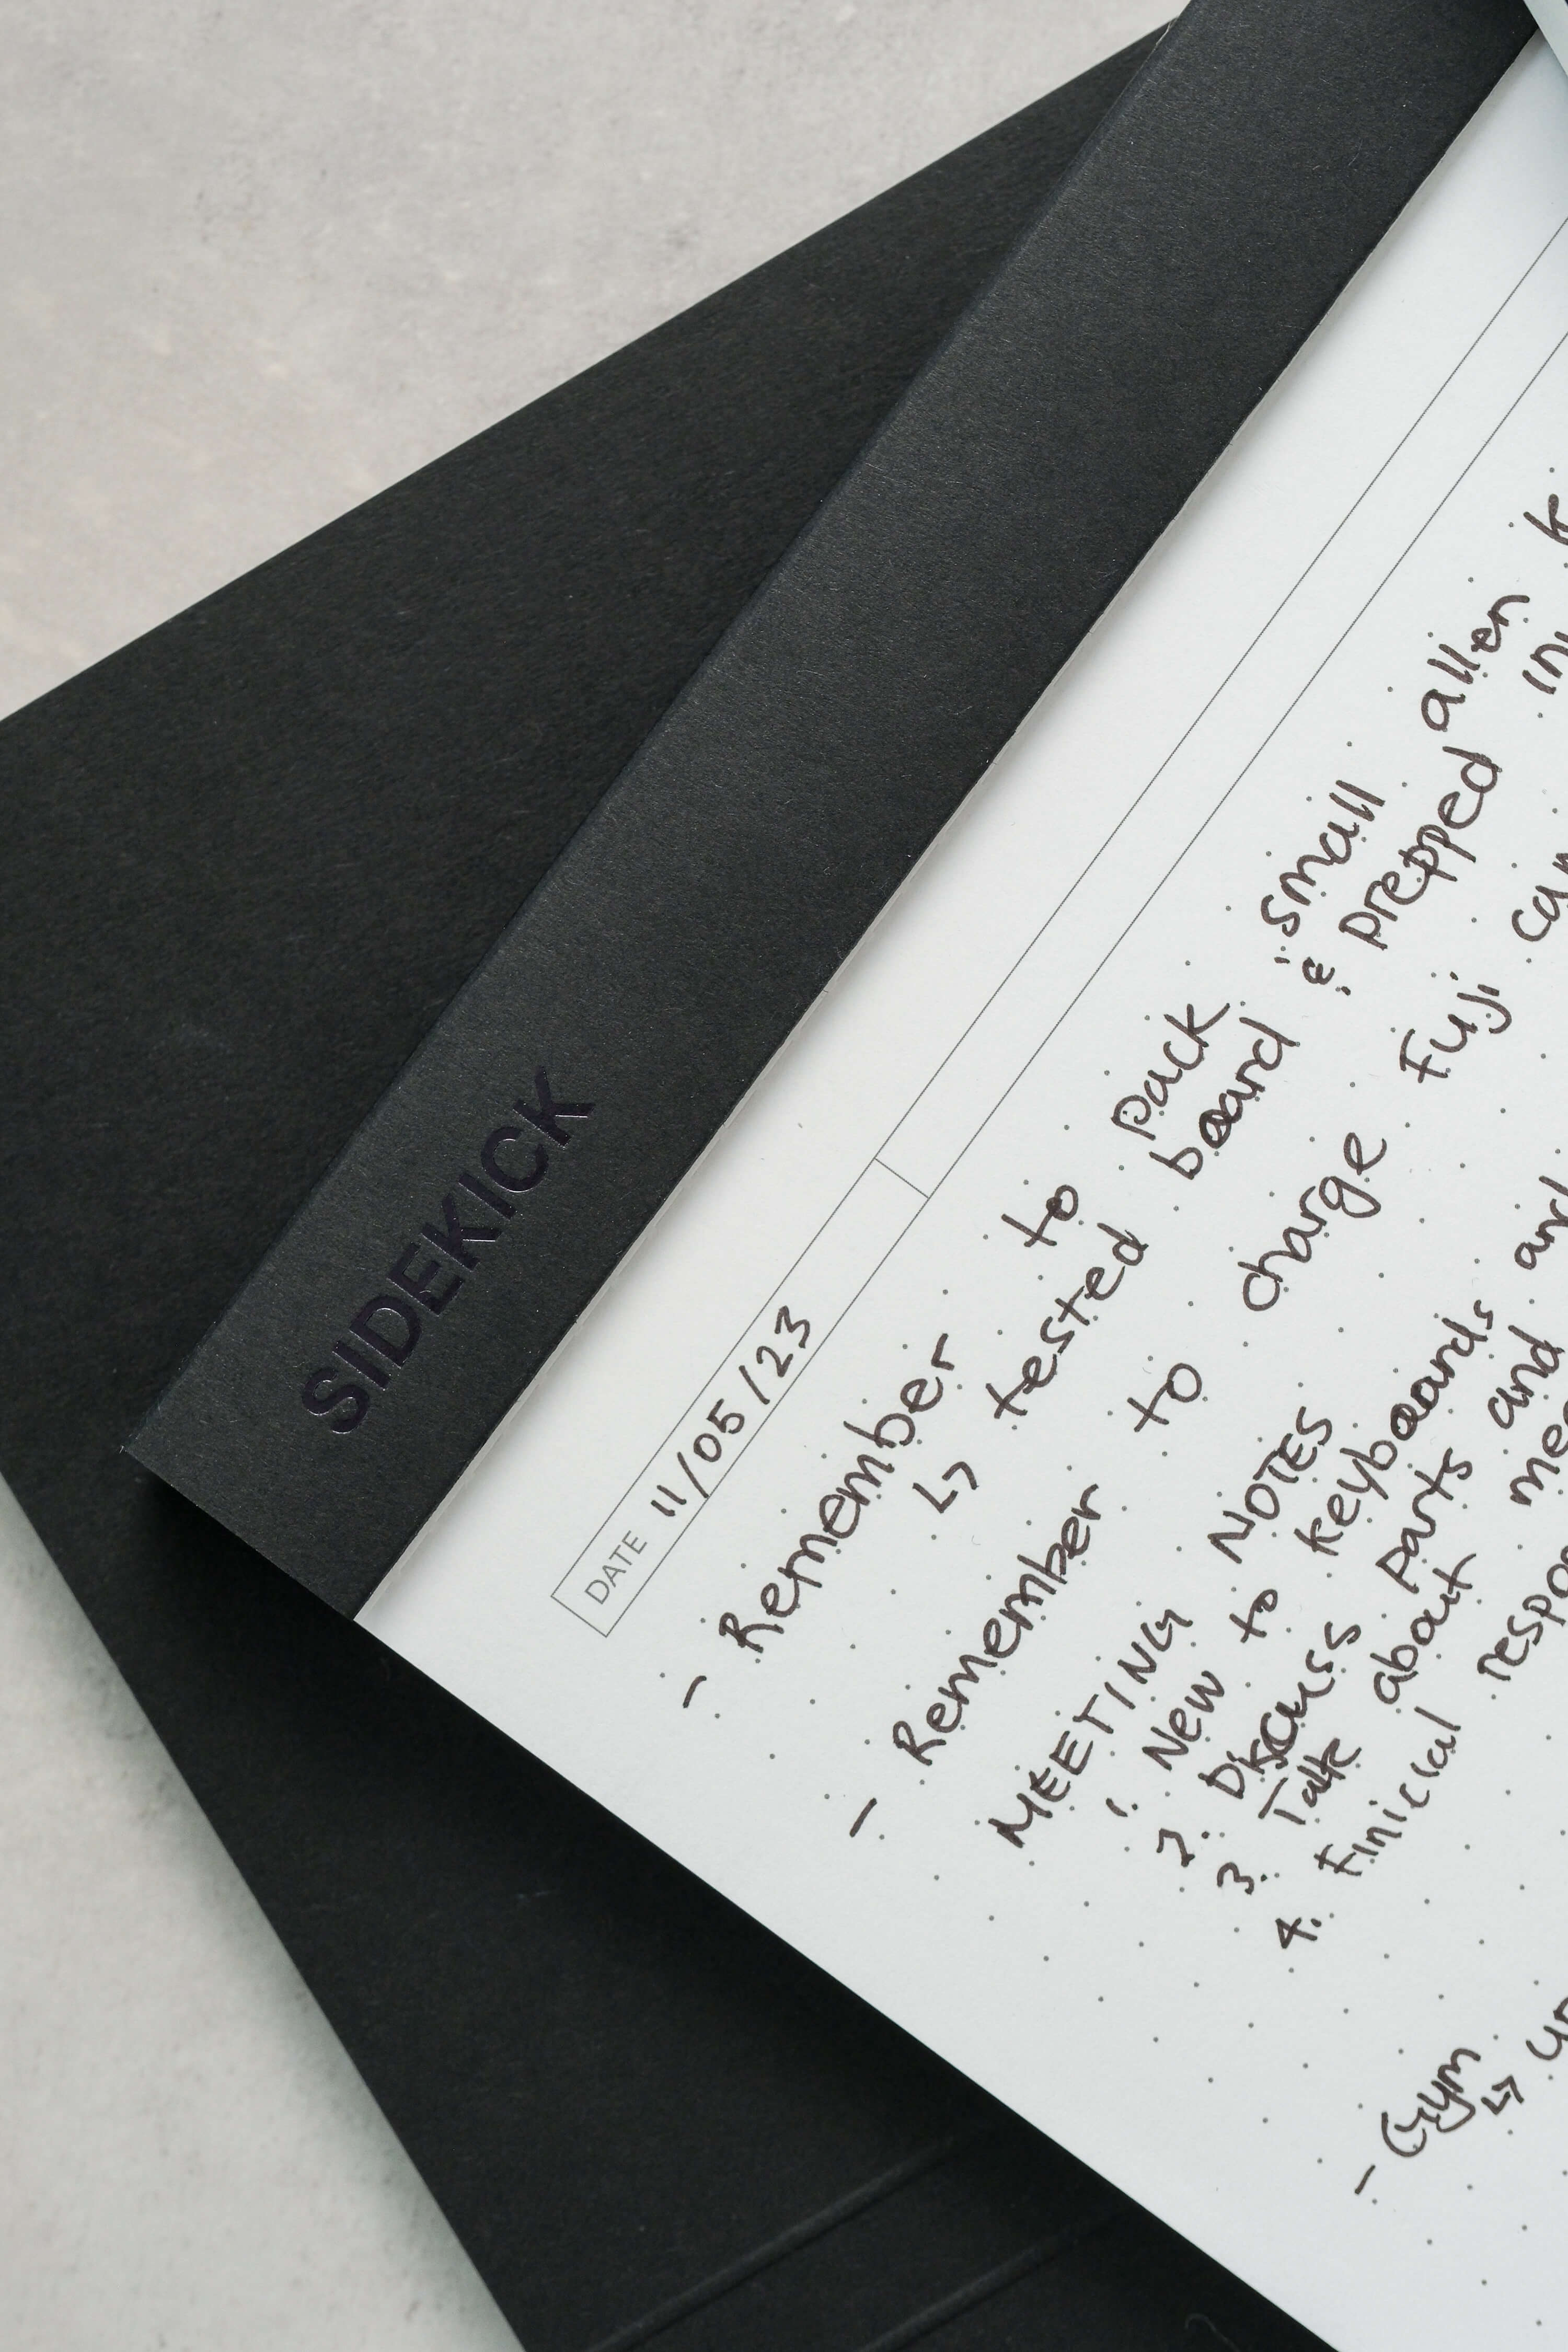 SIDEKICK
DATE 11/05/23
- Remember to pack small allen k
↳ tested board & prepped in
- Remember to charge Fuji cam
MEETING NOTES
1. New to keyboards and
2. Discuss parts and
3. Talk about me
4. Finicial respo
- Gym
↳